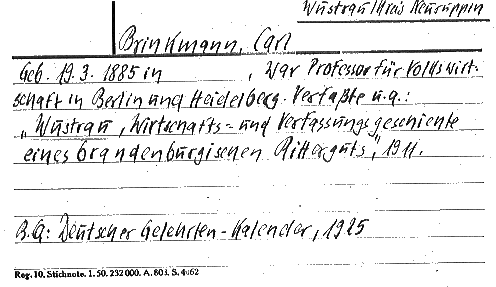 Wustrau Kreis Neuruppin
Brinkmann, Carl
Geb. 19.3. 1885 in , War Professor für Volkswirt-
schaft in Berlin und Heidelberg. Verfaßte u.a.:
„Wustrau, Wirtschafts- und Verfassungsgeschichte
eines brandenburgischen Ritterguts", 1911.
B.Q: Deutscher Gelehrten-Kalender, 1925
Reg. 10. Stichnote. 1. 50. 232 000. A. 803. S. 4062